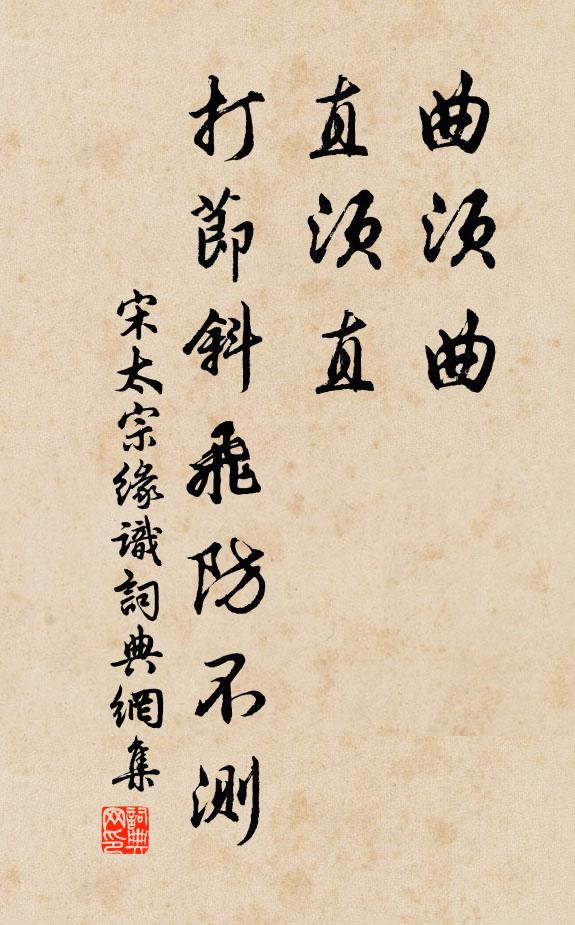 曲须曲
直须直
打節斜飛防不測
宋太宗缘識詞典網集
詞典网印